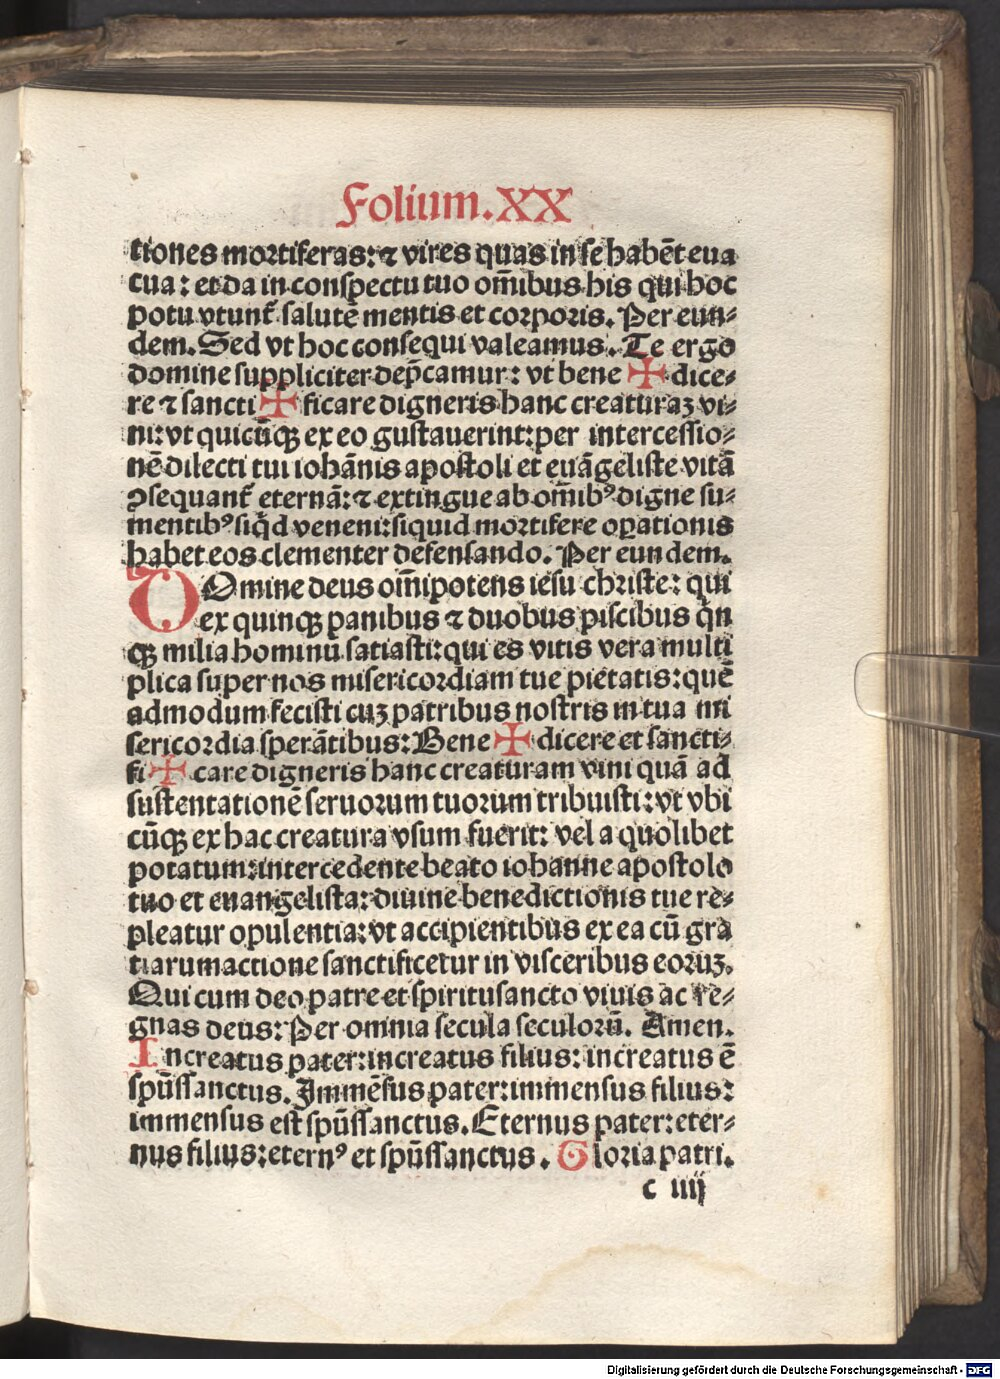 Folium.XX
ctiones mortiferas: ⁊ vires quas in se habēt eua
cua: et da in conspectu tuo om̄ibus his qui hoc
potu vtunt᷑ salutē mentis et corporis. Per eun⸗
dem. Sed vt hoc consequi valeamus. Te ergo
domine suppliciter dep̄camur: vt bene ✠ dice⸗
re ⁊ sancti ✠ ficare digneris hanc creaturaꝫ vi⸗
ni: vt quicūqꝫ ex eo gustauerint: per intercessio⸗
nē dilecti tui iohānis apostoli et euāgeliste vitā
ꝯsequant᷑ eternā: ⁊ extingue ab om̄ibꝰ digne su⸗
mentibꝰ siqd̄ veneni: siquid mortifere oꝑationis
habet eos clementer defensando. Per eundem.
DOmine deus om̄ipotens iesu christe: qui
ex quinqꝫ panibus ⁊ duobus piscibus qn̄
qꝫ milia hominū satiasti: qui es vitis vera multi
plica super nos misericordiam tue pietatis: quē
admodum fecisti cuꝫ patribus nostris in tua mi
sericordia sperātibus: Bene ✠ dicere et sancti⸗
fi ✠ care digneris hanc creaturam vini quā ad
sustentationē seruorum tuorum tribuisti: vt vbi
cūqꝫ ex hac creatura vsum fuerit: vel a quolibet
potatum: intercedente beato iohanne apostolo
tuo et euangelista: diuine benedictionis tue re⸗
pleatur opulentia: vt accipientibus ex ea cū gra
tiarumactione sanctificetur in visceribus eoruꝫ.
Qui cum deo patre et spiritusancto viuis ac re⸗
gnas deus: Per omnia secula seculorū. Amen.
Increatus pater: increatus filius: increatus ē
spūssanctus. Immēsus pater: immensus filius:
immensus est spūssanctus. Eternus pater: eter⸗
nus filius: eternꝰ et spūssanctus. Gloria patri.
c iiij
Digitalisierung gefördert durch die Deutsche Forschungsgemeinschaft - DFG